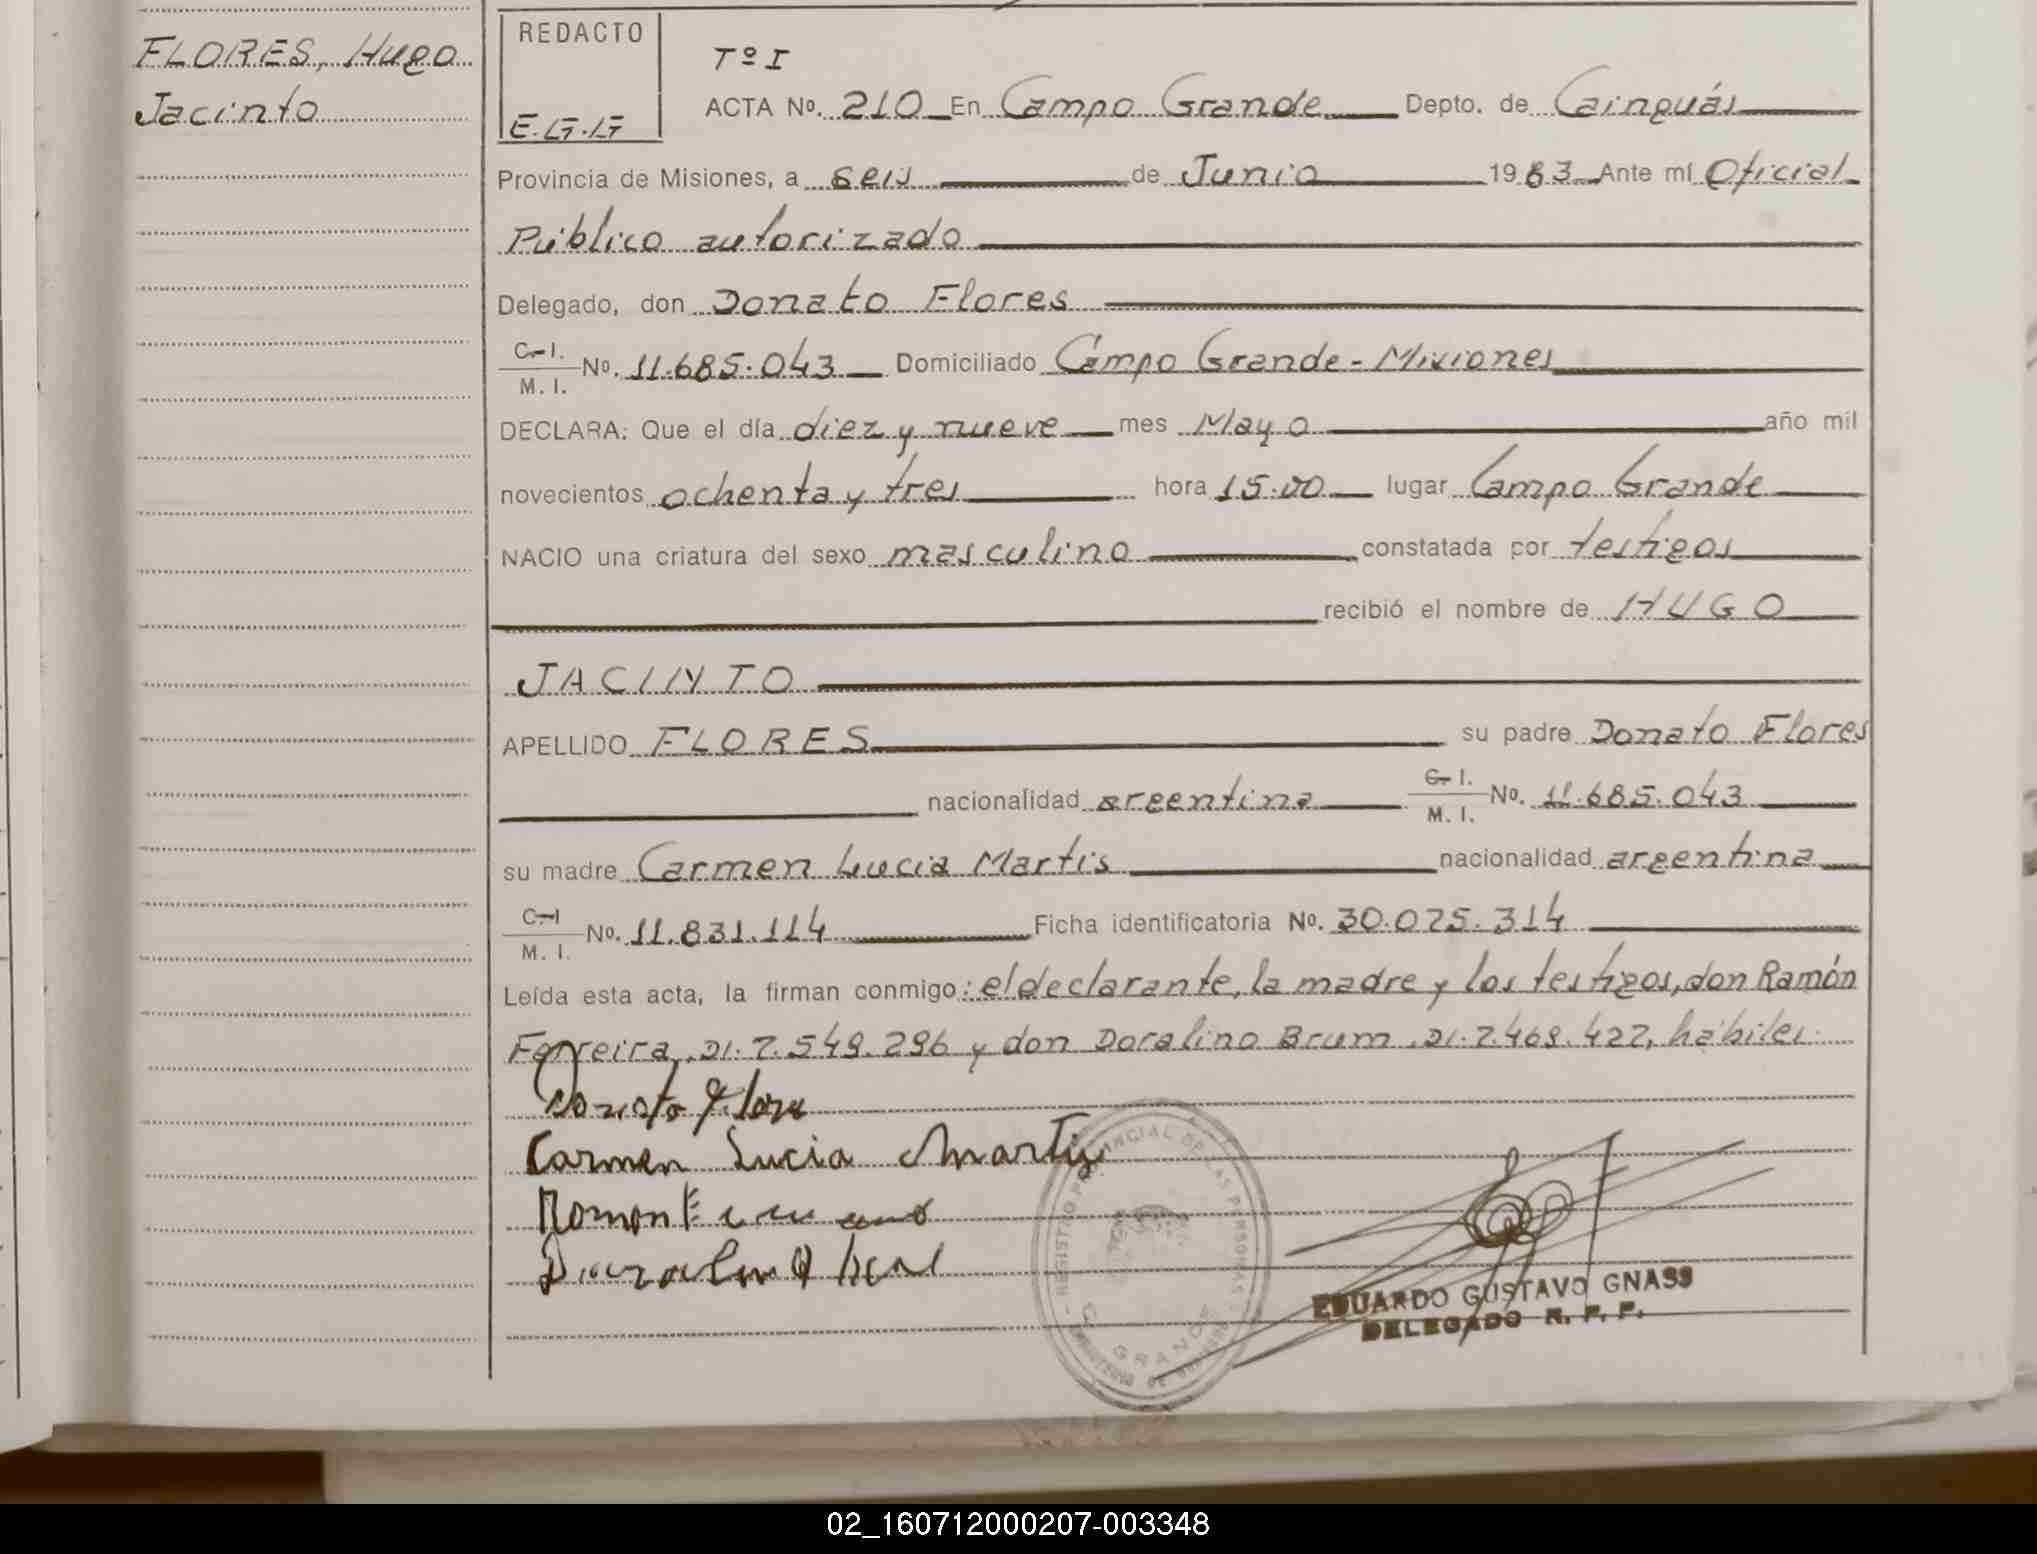 FLORES, Hugo
Jacinto
REDACTO
E.G.G
Tº I
ACTA Nº. 210 En Campo Grande Depto. de Cainguás
Provincia de Misiones, a seis de Junio 1983 Ante mí Oficial
Público autorizado
Delegado, don Donato Flores
C. I.
M. I. Nº. 11.685.043 Domiciliado Campo Grande - Misiones
DECLARA: Que el día diez y nueve mes Mayo año mil
novecientos ochenta y tres hora 15.00 lugar Campo Grande
NACIO una criatura del sexo masculino constatada por testigos
recibió el nombre de HUGO
JACINTO
APELLIDO FLORES su padre Donato Flores
nacionalidad argentina C. I.
M. I. Nº. 11.685.043
su madre Carmen Lucia Martis nacionalidad argentina
C. I
M. I. Nº. 11.831.114 Ficha identificatoria Nº. 30.025.314
Leída esta acta, la firman conmigo: el declarante, la madre y los testigos, don Ramón
Ferreira, 7.549.296 y don Doralino Brum, hábiles.
Donato Flore
Carmen Lucia Martis
Ramon
REGISTRO PROVINCIAL DE LAS PERSONAS
C. GRANDE
MINISTERIO DE GOBIERNO
EDUARDO GUSTAVO GNASS
DELEGADO R. P. P.
02_160712000207-003348